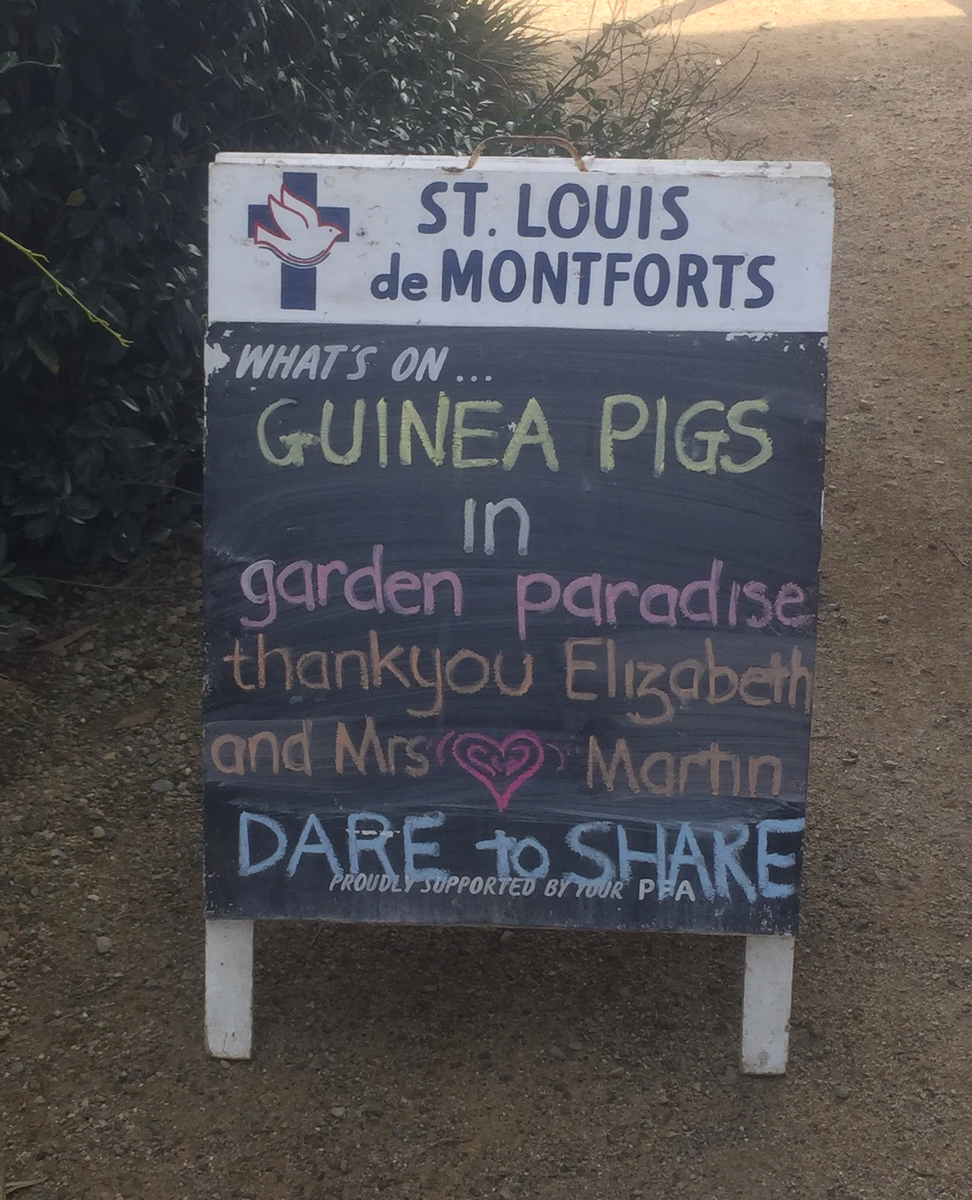 ST. LOUIS
de MONTFORTS
WHAT'S ON ...
GUINEA PIGS
in
garden paradise
thankyou Elizabeth
and Mrs Martin
DARE to SHAKE
PROUDLY SUPPORTED BY YOUR PFA